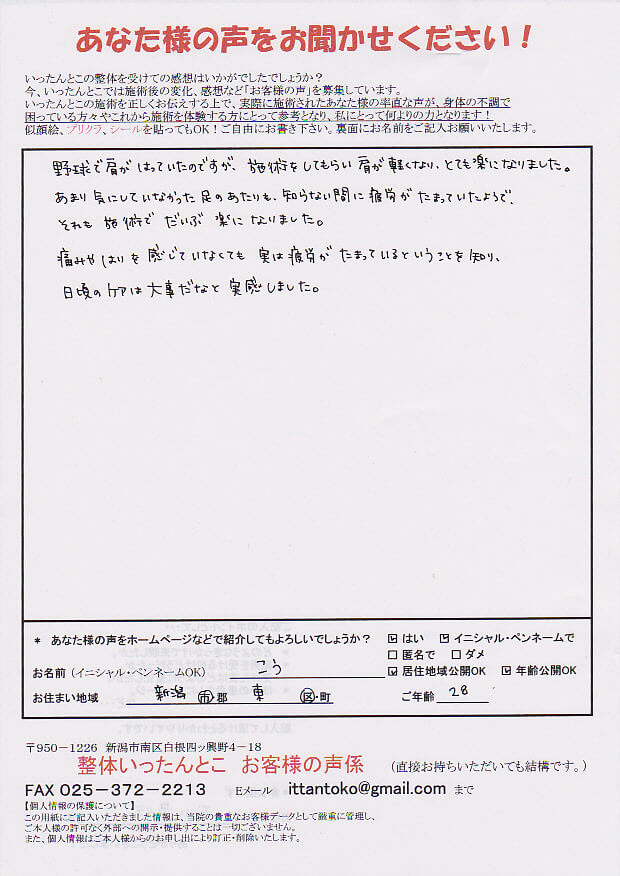 あなた様の声をお聞かせください！
いったんとこの整体を受けての感想はいかがでしたでしょうか？
今、いったんとこでは施術後の変化、感想など「お客様の声」を募集しています。
いったんとこの施術を正しくお伝えする上で、実際に施術されたあなた様の率直な声が、身体の不調で
困っている方々やこれから施術を体験する方にとって参考となり、私にとって何よりの力となります！
似顔絵、プリクラ、シールを貼ってもOK！ご自由にお書き下さい。裏面にお名前をご記入お願いいたします。
野球で肩がはっていたのですが、施術をしてもらい肩が軽くなり、とても楽になりました。
あまり気にしていなかった足のあたりも、知らない間に疲労がたまっていたようで、
それも施術でだいぶ楽になりました。
痛みやはりを感じていなくても実は疲労がたまっているということを知り、
日頃のケアは大事だなと実感しました。
* あなた様の声をホームページなどで紹介してもよろしいでしょうか？ ☑ はい ☑ イニシャル・ペンネームで
□ 匿名で □ ダメ
お名前（イニシャル・ペンネームOK） こう ☑ 居住地域公開OK ☑ 年齢公開OK
お住まい地域 新潟 市・郡 東 区・町 ご年齢 28
〒950－1226 新潟市南区白根四ッ興野4－18
整体いったんとこ お客様の声係 （直接お持ちいただいても結構です。）
FAX 025－372－2213 Eメール ittantoko@gmail.com まで
【個人情報の保護について】
この用紙にご記入いただきました情報は、当院の貴重なお客様データとして厳重に管理し、
ご本人様の許可なく外部への開示・提供することは一切ございません。
また、個人情報はご本人様からのお申し出により訂正・削除いたします。